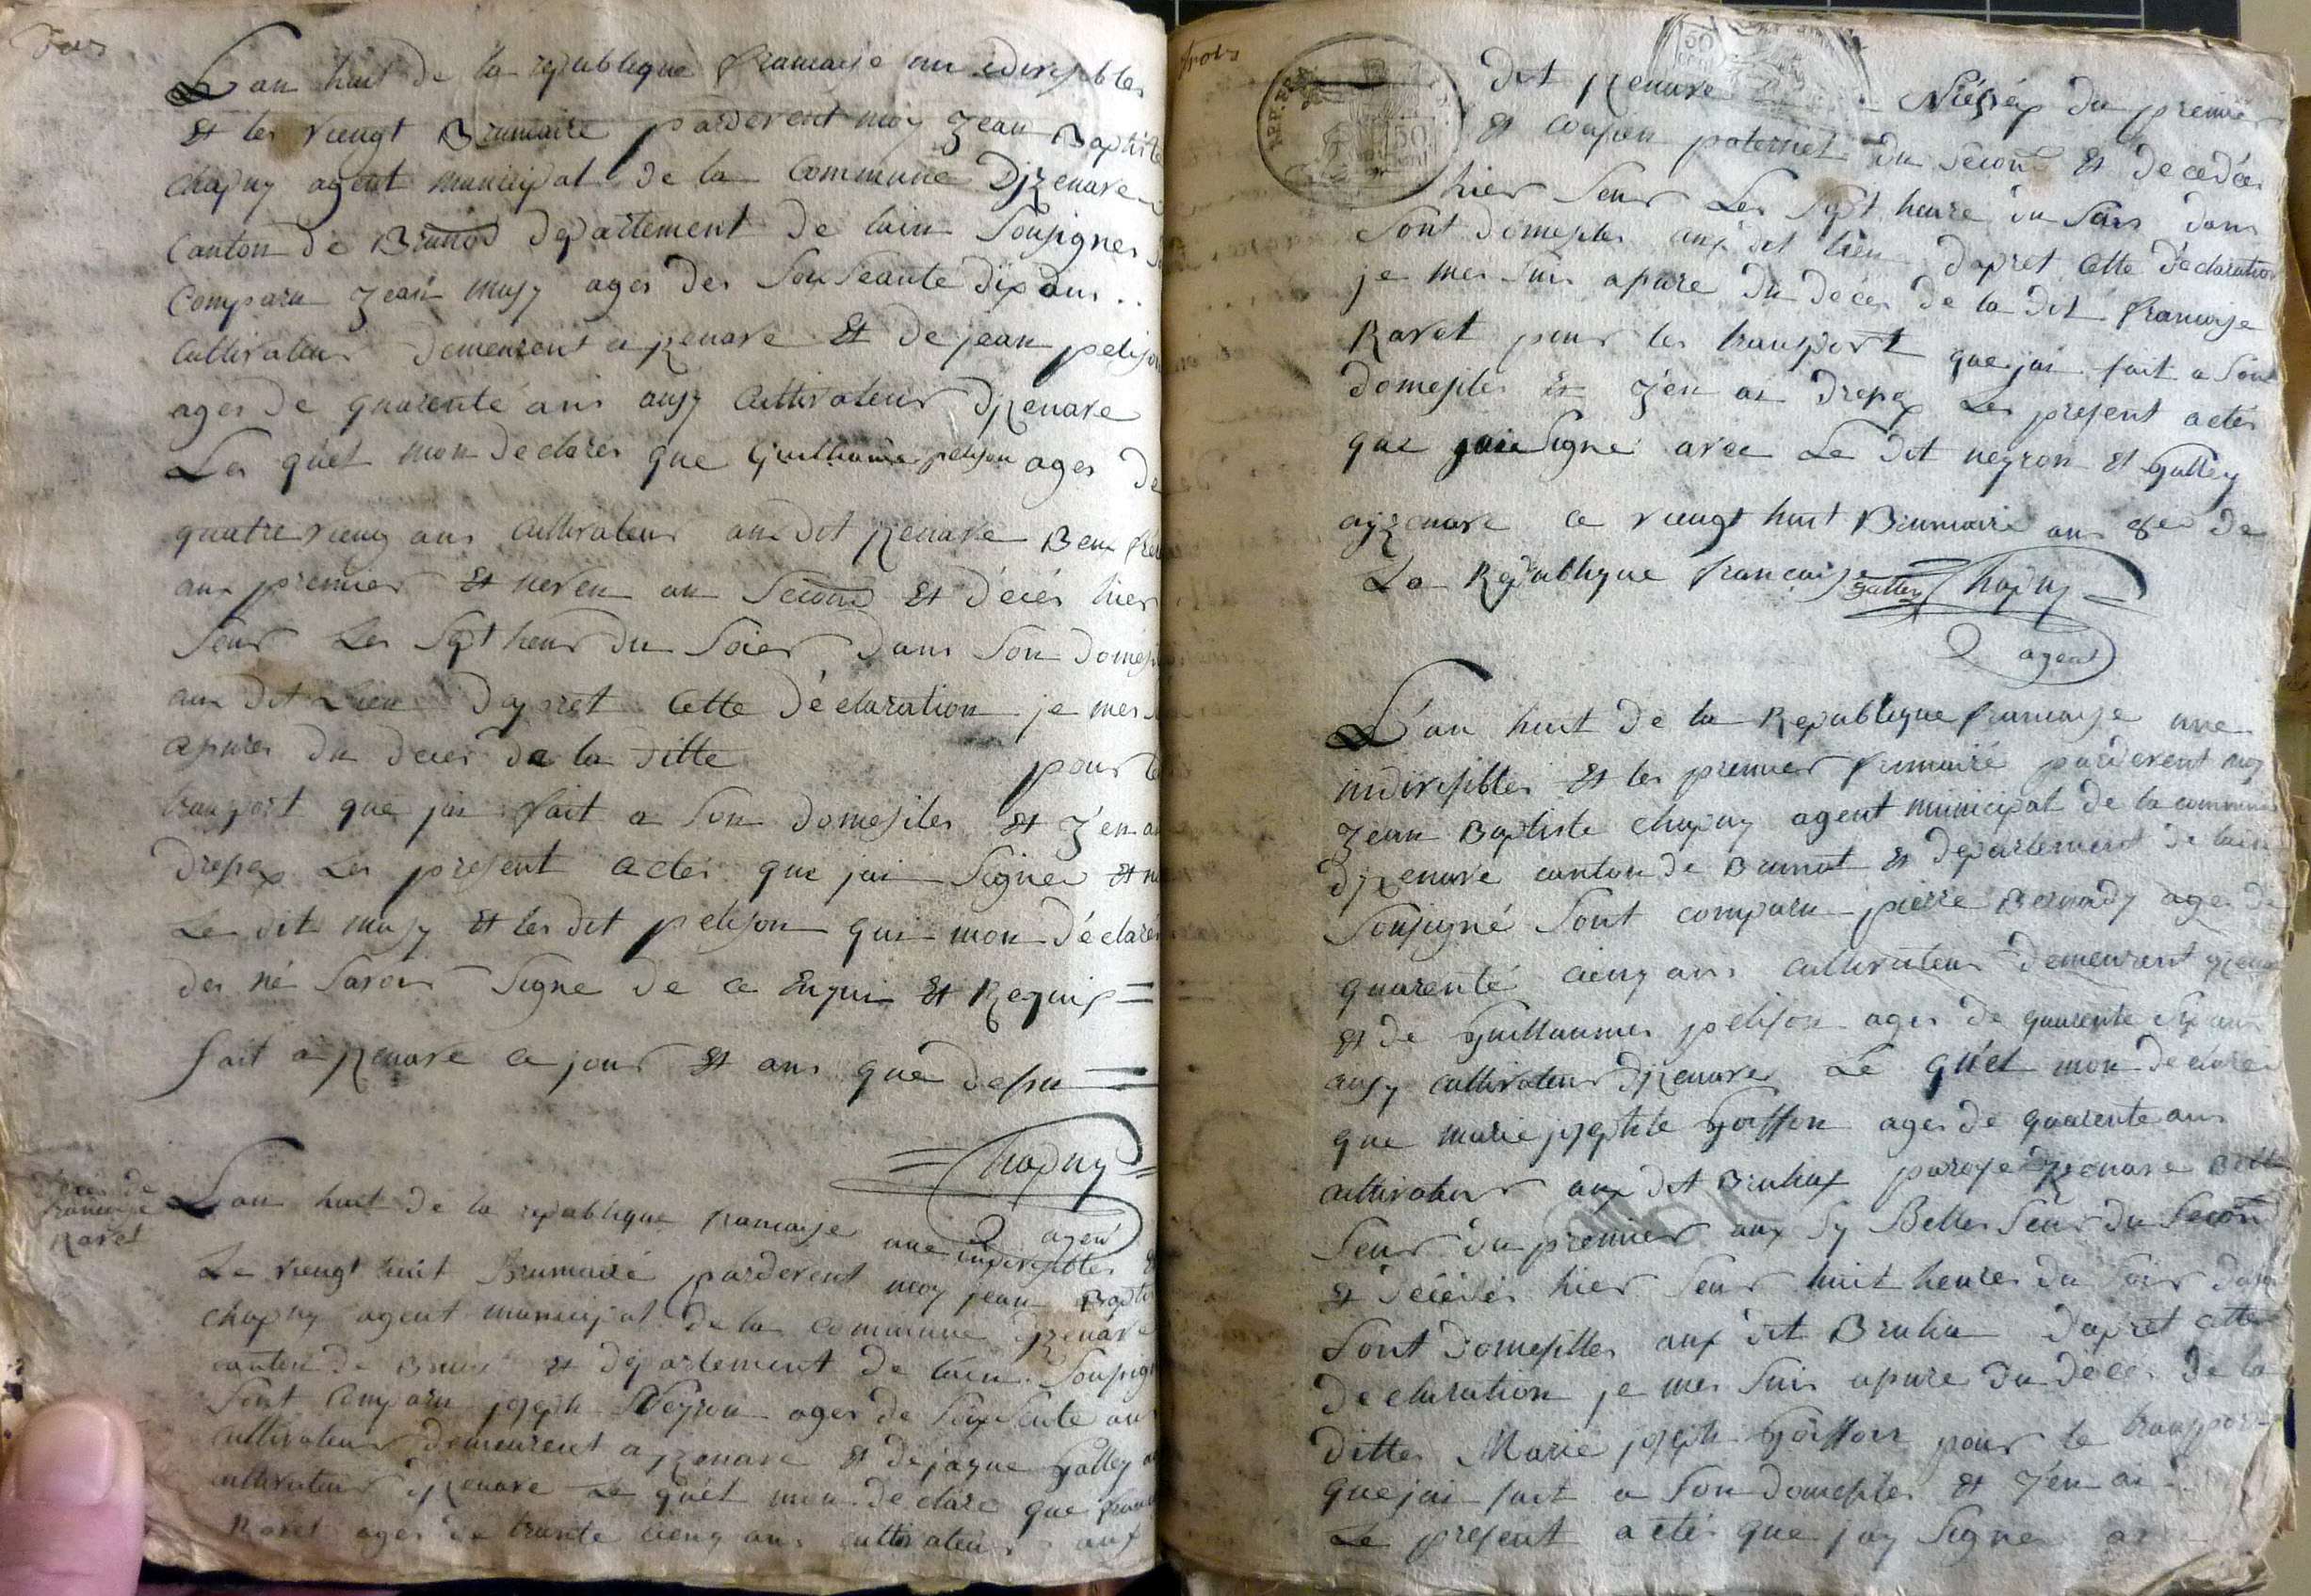 L'an huit de la republique francaise une indivisibles
Et les vengt Brumaire parderent moy Jean Baptiste
Chapuy agent municipal de la Commune Djzenave
Canton de departement de lain Sousignes
Comparu Jean musy ages des Soisseante dix ans ..
Cultivateur demeurent a jzenave Et de jean pelison
ages de quarente ans ausy Cultivateur Djzenave
Les quel mon declares que Guilliaume pelison ages de
quatre vieng ans cultivateur au dit jzenave Beux frer
aux premier Et neveu au Second Et décés hier
Seur Les Sept heur du Soier dans Son domesile
aux dit Lieu dapret Cette déclaration je mes
apures du deces de la ditte pour le
transport que jai fait a Son domesiles Et J'en ai
dresex Les present actes que jai Signer Et
Le dit musy Et les dit pelison qui mon déclarés
des né Savoir Signe de ce Enquis Et Requis =
fait a jzenave ce jour Et ans que desu =
Chapuy
agent
deces de
francoise
Ravet
L'an huit de la republique francaise une indivisibles
Le viengt huit Brumaire parderent moy jean Baptiste
Chapuy agent municipal de la Commune djzenave
canton de Et departement de lain Sousigne
Sont Comparu joseph Neyron ages de Soixsente ans
cultivateur demeurent a jzenave Et de jaque Galley
cultivateur djzenave Le quel mon declare que
Ravet ages de trante cieng ans cultivateur aux
trois
dit jzenave Niésex du premier
Et cousien paternel du Second Et decedes
hier Seur Les Sept heure du Soir dans
Sont domesiles aux dit lieu dapret Cette déclaration
je mes Suis apure du déces de la dit francoise
Ravet pour les transport que jai fait a Son
domesiles Et J'en ai dresex Les present actes
que jai Signe avec Le dit neyron Et Galley
ajzenave ce viengt huit Brumaire an 8e de
La Republique francaise Galley Chapuy
agent
L'an huit de la Republique francaise une
indivisibles Et les premier frumaire parderent moy
Jean Baptiste chapuy agent municipal de la commune
djzenave canton de Brunot Et departement de lain
Sousigné Sont comparu pierre Bernady ages de
quarenté cieng ans cultivateur demeurent
Et de Guillaumes pelison ages de quarente Six ans
ausy cultivateur djzenaves Le quel mon declares
que marie josephte Goiffon ages de quarente ans
cultivateur aux dit Bruhax paroise djzenave Belle
Seur du premier aux Sy Belles Seur du Second
Et décédés hier Seur huit heures du Soir dans
Sont domesilles aux dit Bruhia dapret cette
declaration je mes Suis apure du décés de la
dittes Marie joseph Goiffon pour le transport
que jai fait a Son domesiles Et J'en ai
Le present actes que jay Signe